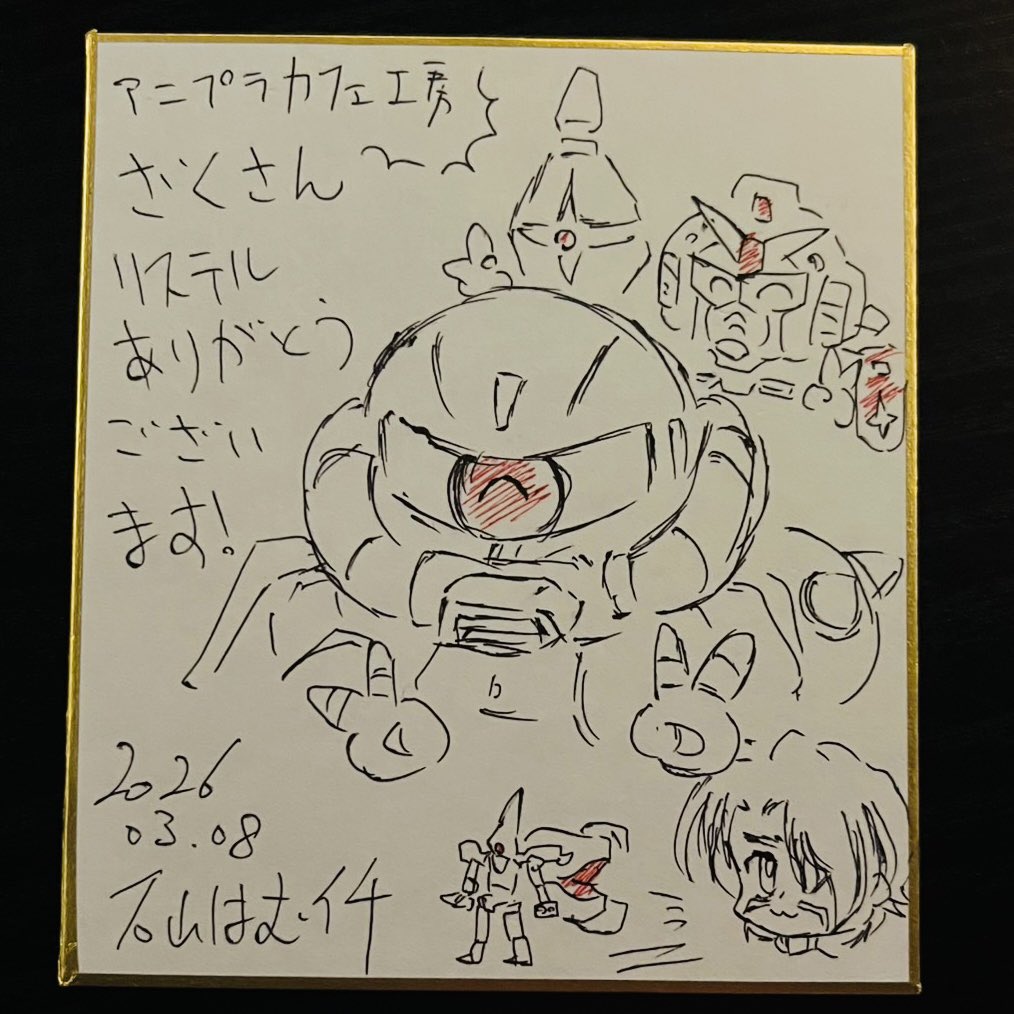 アニプラカフェ工房
ざくさん
リステル
ありがとう
ござい
ます!
2026
03.08
石山はむイチ